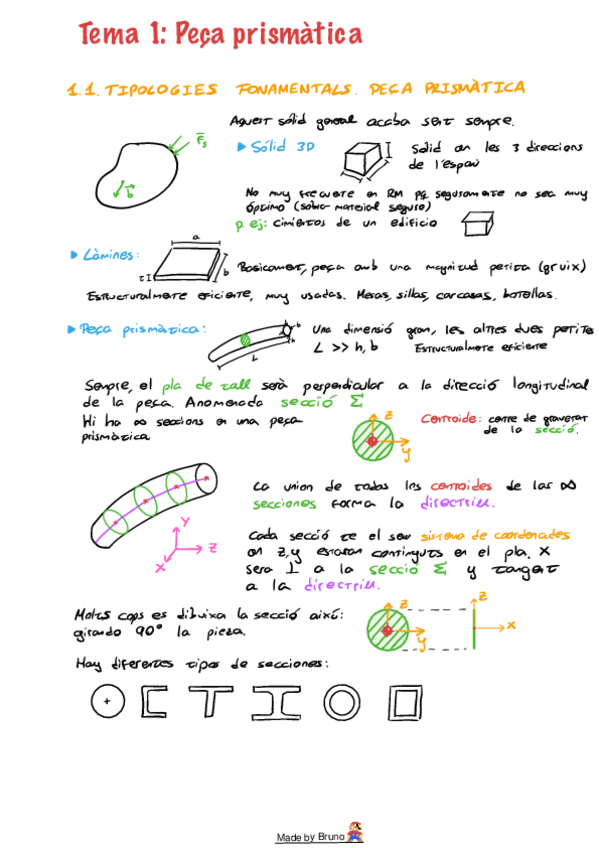 Tema 1: Peça prismàtica
1.1. TIPOLOGIES FONAMENTALS. PEÇA PRISMÀTICA
Aquest sòlid general acaba sent sempre.
Fs
▶ Sólid 3D
Sòlid en les 3 direccions
de l'espai
No muy frecuente en RM pq seguramente no sea muy
óptimo (sobra material seguro)
p ej: cimientos de un edificio
▶ Làmines:
a
b
t
Basicament, peça amb una magnitud petita (gruix)
Estructuralmente eficiente, muy usadas. Mesas, sillas, carcasas, botellas.
▶ Peça prismàtica:
b
h
L
Una dimensió gran, les altres dues petites
L >> h, b Estructuralmente eficiente
Sempre, el pla de tall serà perpendicular a la direcció longitudinal
de la peça. Anomenada secció Σ
Hi ha ∞ seccions en una peça
prismàtica
z
y
Centroide: centre de gravetat
de la secció.
La union de todas les centroides de las ∞
secciones forma la directriu.
Y
Z
X
Cada secció te el seu sistema de coordenades
on z,y estaran continguts en el pla. X
sera ⊥ a la secció Σ y tangent
a la directriu.
Molts cops es dibuixa la secció així:
girando 90° la pieza.
z
y
z
x
Hay diferentes tipos de secciones:
Made by Bruno